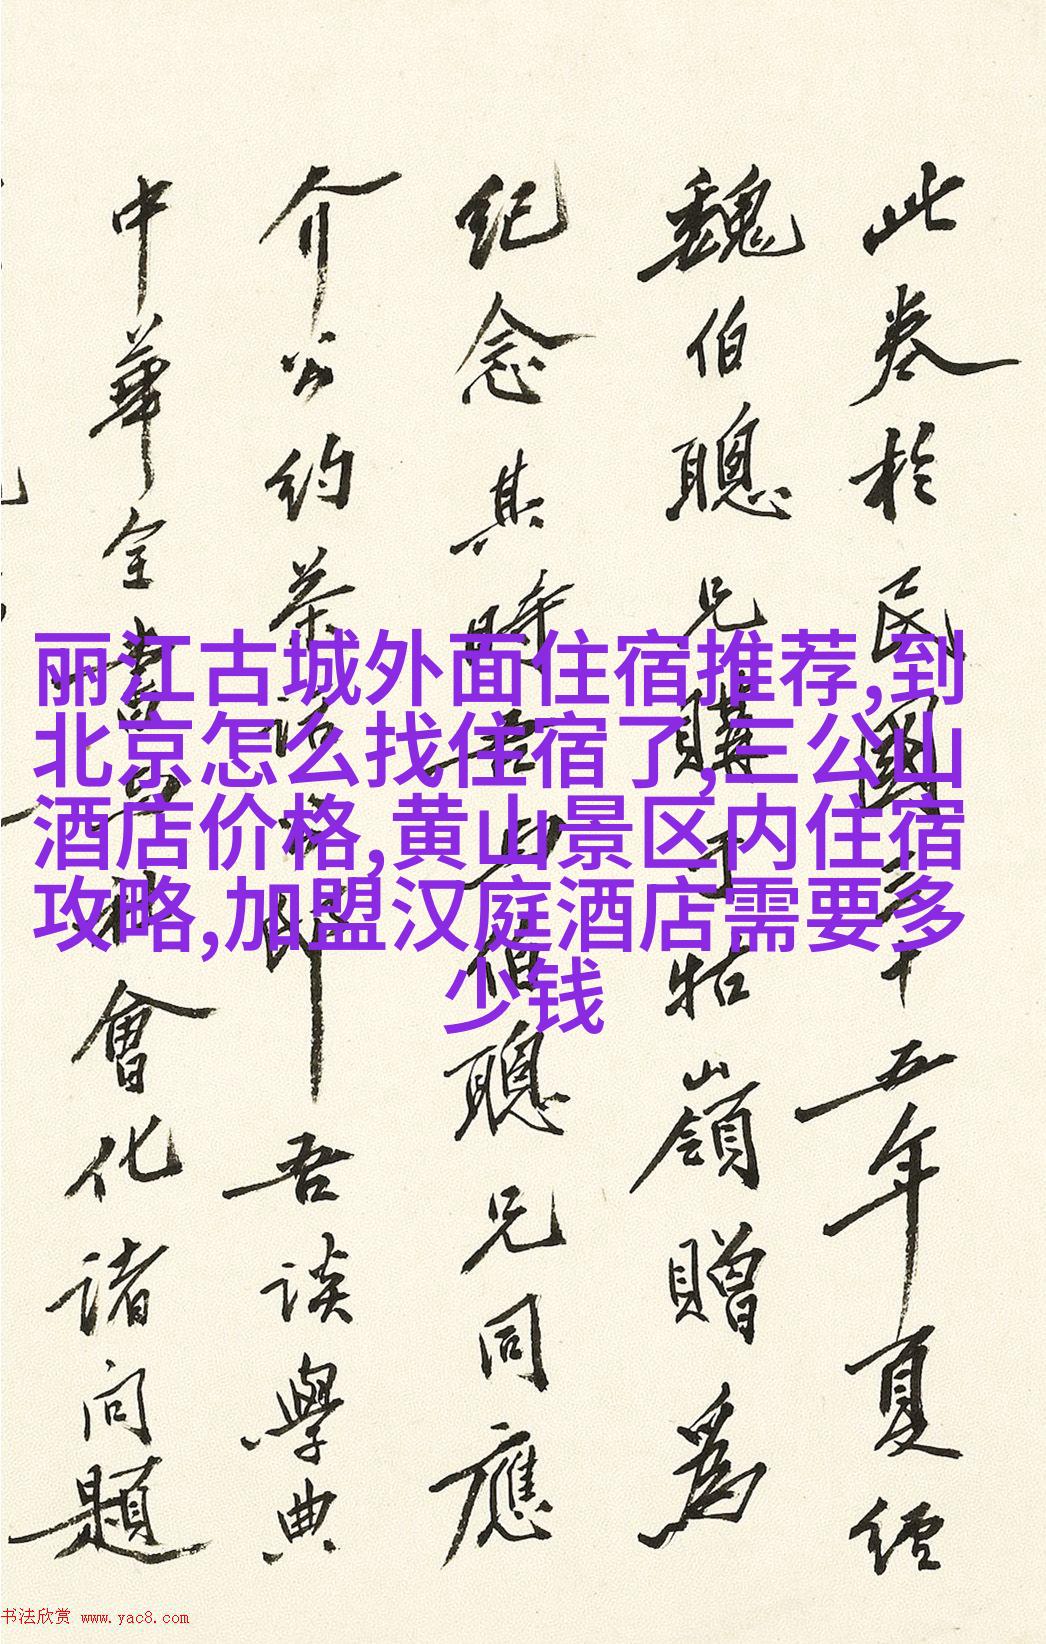 此卷於民國三十五年夏經
魏伯聰兄購于牯嶺贈為
紀念其時吾與伯聰兄同應
介公約茶話
即吾談學典
中華全書與社會化諸問題
丽江古城外面住宿推荐,到
北京怎么找住宿了,三公山
酒店价格,黄山景区内住宿
攻略,加盟汉庭酒店需要多
少钱
书法欣赏 www.yac8.com